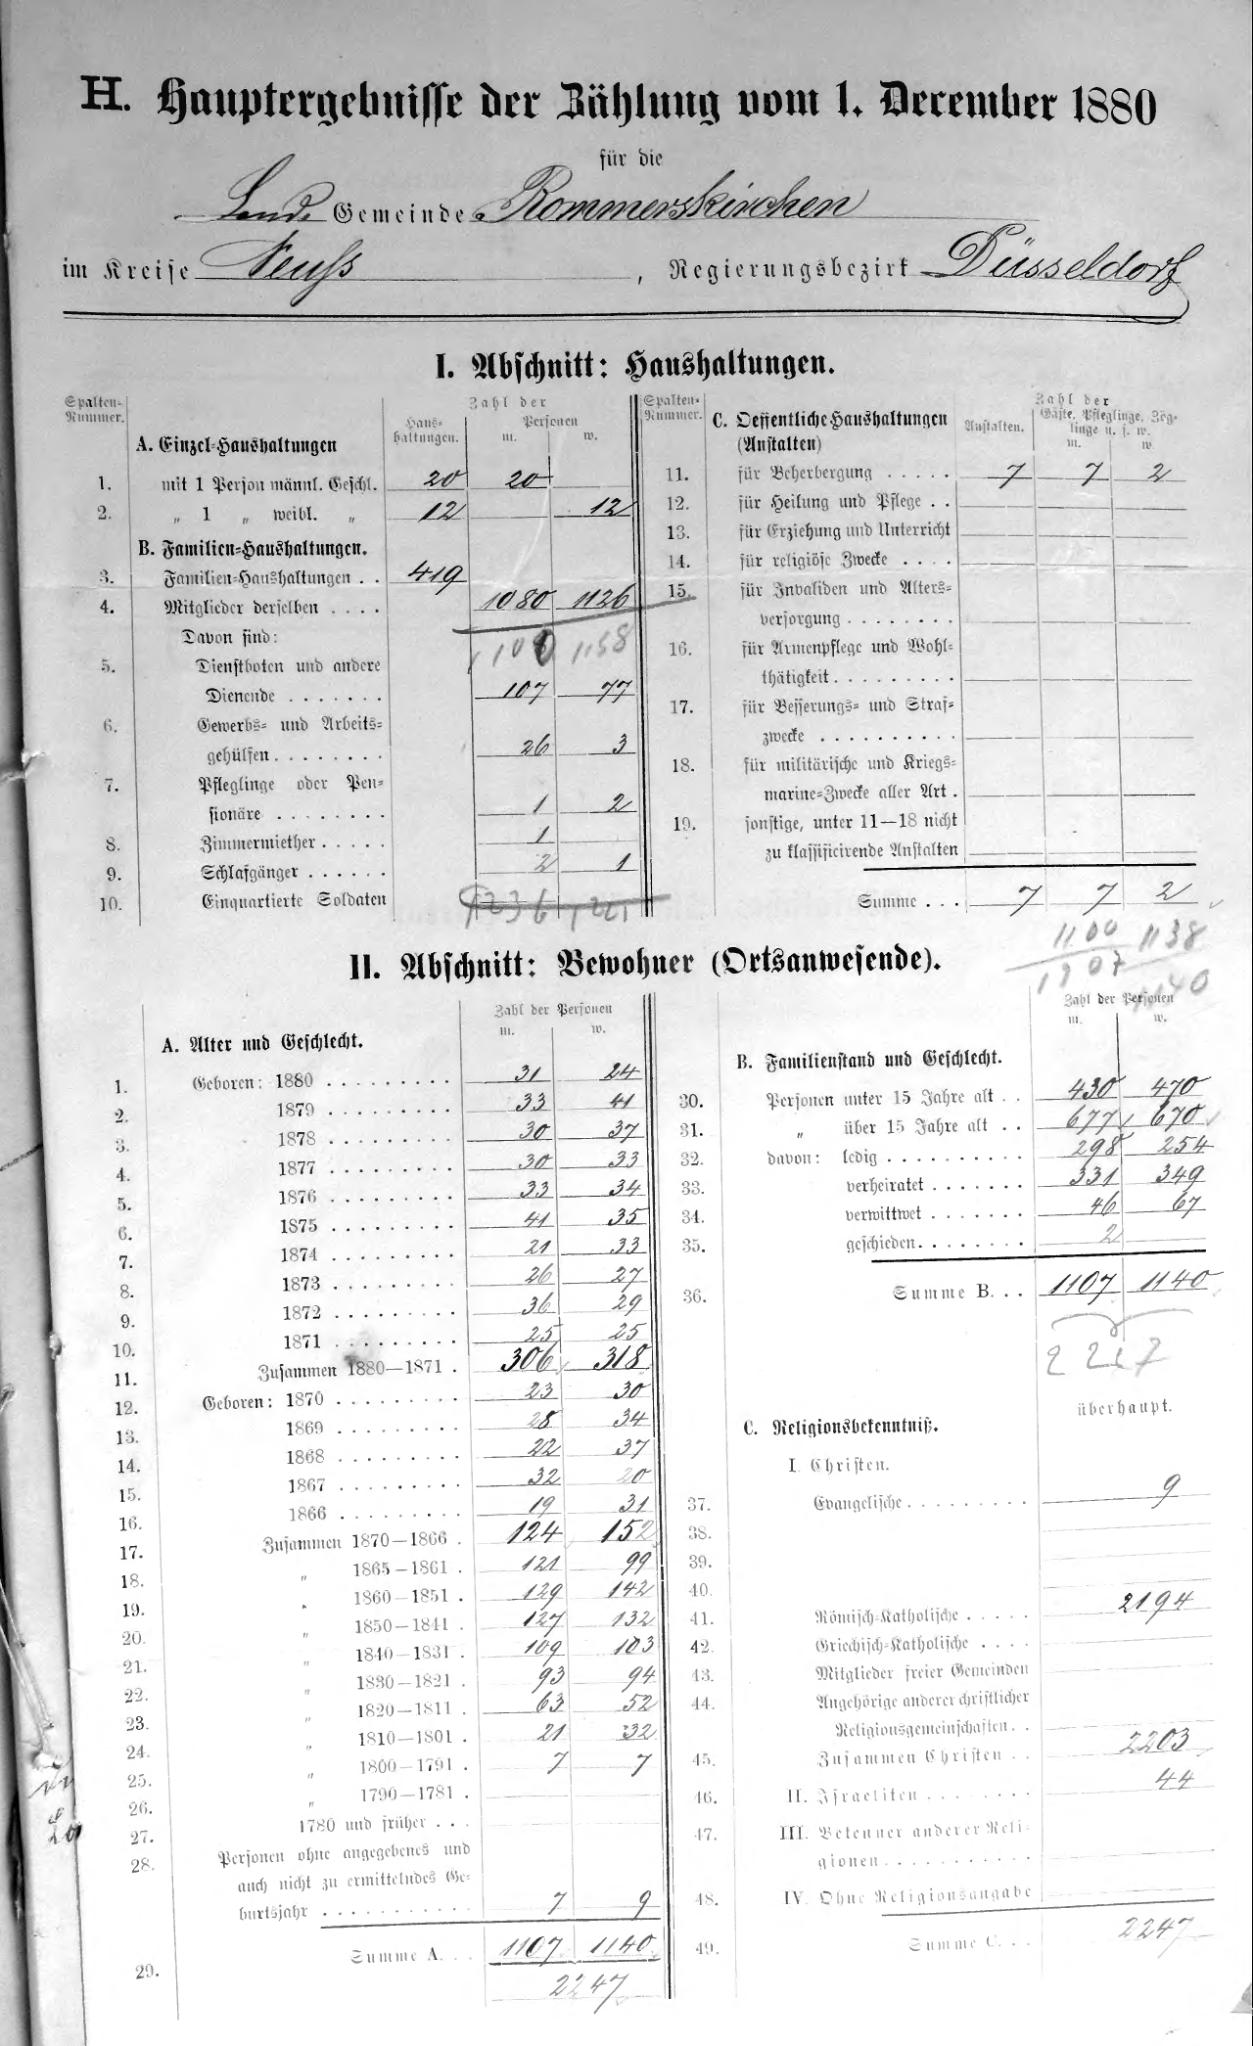 H. Hauptergebnisse der Zählung vom 1. December 1880
für die
Land Gemeinde Rommerskirchen
im Kreise Neuss, Regierungsbezirk Düsseldorf
I. Abschnitt: Haushaltungen.
Spalten-Nummer. Haus-haltungen. Zahl der Personen m. w.
A. Einzel-Haushaltungen
1. mit 1 Person männl. Geschl. 20 20
2. „ 1 „ weibl. „ 12 12
B. Familien-Haushaltungen.
3. Familien-Haushaltungen . . 419
4. Mitglieder derselben . . . . 1080 1126
Davon sind:
5. Dienstboten und andere
Dienende . . . . . . . 107 77
6. Gewerbs- und Arbeits-
gehülfen . . . . . . . . 26 3
7. Pfleglinge oder Pen-
sionäre . . . . . . . . 1 2
8. Zimmermiether . . . . . 1
9. Schlafgänger . . . . . . 2 1
10. Einquartierte Soldaten
Spalten-Nummer. Anstalten. Zahl der Gäste, Pfleglinge, Zög-linge u. s. w. m. w.
C. Oeffentliche Haushaltungen
(Anstalten)
11. für Beherbergung . . . . . 7 7 2
12. für Heilung und Pflege . .
13. für Erziehung und Unterricht
14. für religiöse Zwecke . . . .
15. für Invaliden und Alters-
versorgung . . . . . . . .
16. für Armenpflege und Wohl-
thätigkeit . . . . . . . . .
17. für Besserungs- und Straf-
zwecke . . . . . . . . . .
18. für militärische und Kriegs-
marine-Zwecke aller Art .
19. sonstige, unter 11—18 nicht
zu klassificirende Anstalten
Summe . . . 7 7 2
1100 1138
1107 1140
II. Abschnitt: Bewohner (Ortsanwesende).
Zahl der Personen
m. w.
A. Alter und Geschlecht.
1. Geboren: 1880 . . . . . . . . . 31 24
2. 1879 . . . . . . . . . 33 41
3. 1878 . . . . . . . . . 30 37
4. 1877 . . . . . . . . . 30 33
5. 1876 . . . . . . . . . 33 34
6. 1875 . . . . . . . . . 41 35
7. 1874 . . . . . . . . . 21 33
8. 1873 . . . . . . . . . 26 27
9. 1872 . . . . . . . . . 36 29
10. 1871 . . . . . . . . . 25 25
11. Zusammen 1880—1871 . 306 318
12. Geboren: 1870 . . . . . . . . . 23 30
13. 1869 . . . . . . . . . 28 34
14. 1868 . . . . . . . . . 22 37
15. 1867 . . . . . . . . . 32 20
16. 1866 . . . . . . . . . 19 31
17. Zusammen 1870—1866 . 124 152
18. „ 1865—1861 . 121 99
19. „ 1860—1851 . 129 142
20. „ 1850—1841 . 127 132
21. „ 1840—1831 . 109 103
22. „ 1830—1821 . 93 94
23. „ 1820—1811 . 63 52
24. „ 1810—1801 . 21 32
25. „ 1800—1791 . 7 7
26. „ 1790—1781 .
27. 1780 und früher . . .
28. Personen ohne angegebenes und
auch nicht zu ermittelndes Ge-
burtsjahr . . . . . . . . . . . 7 9
29. Summe A. . . 1107 1140
2247
Zahl der Personen
m. w.
B. Familienstand und Geschlecht.
30. Personen unter 15 Jahre alt . . 430 470
31. „ über 15 Jahre alt . . 677 670
32. davon: ledig . . . . . . . . . . 298 254
33. verheiratet . . . . . . . 331 349
34. verwittwet . . . . . . . 46 67
35. geschieden. . . . . . . . 2
36. Summe B. . . 1107 1140
überhaupt.
C. Religionsbekenntniß.
I. Christen.
37. Evangelische . . . . . . . . . 9
38.
39.
40.
41. Römisch-Katholische . . . . . 2194
42. Griechisch-Katholische . . . .
43. Mitglieder freier Gemeinden
44. Angehörige anderer christlicher
Religionsgemeinschaften . .
45. Zusammen Christen . . 2203
46. II. Israeliten . . . . . . . . 44
47. III. Bekenner anderer Reli-
gionen . . . . . . . . . . .
48. IV. Ohne Religionsangabe
49. Summe C. . . 2247